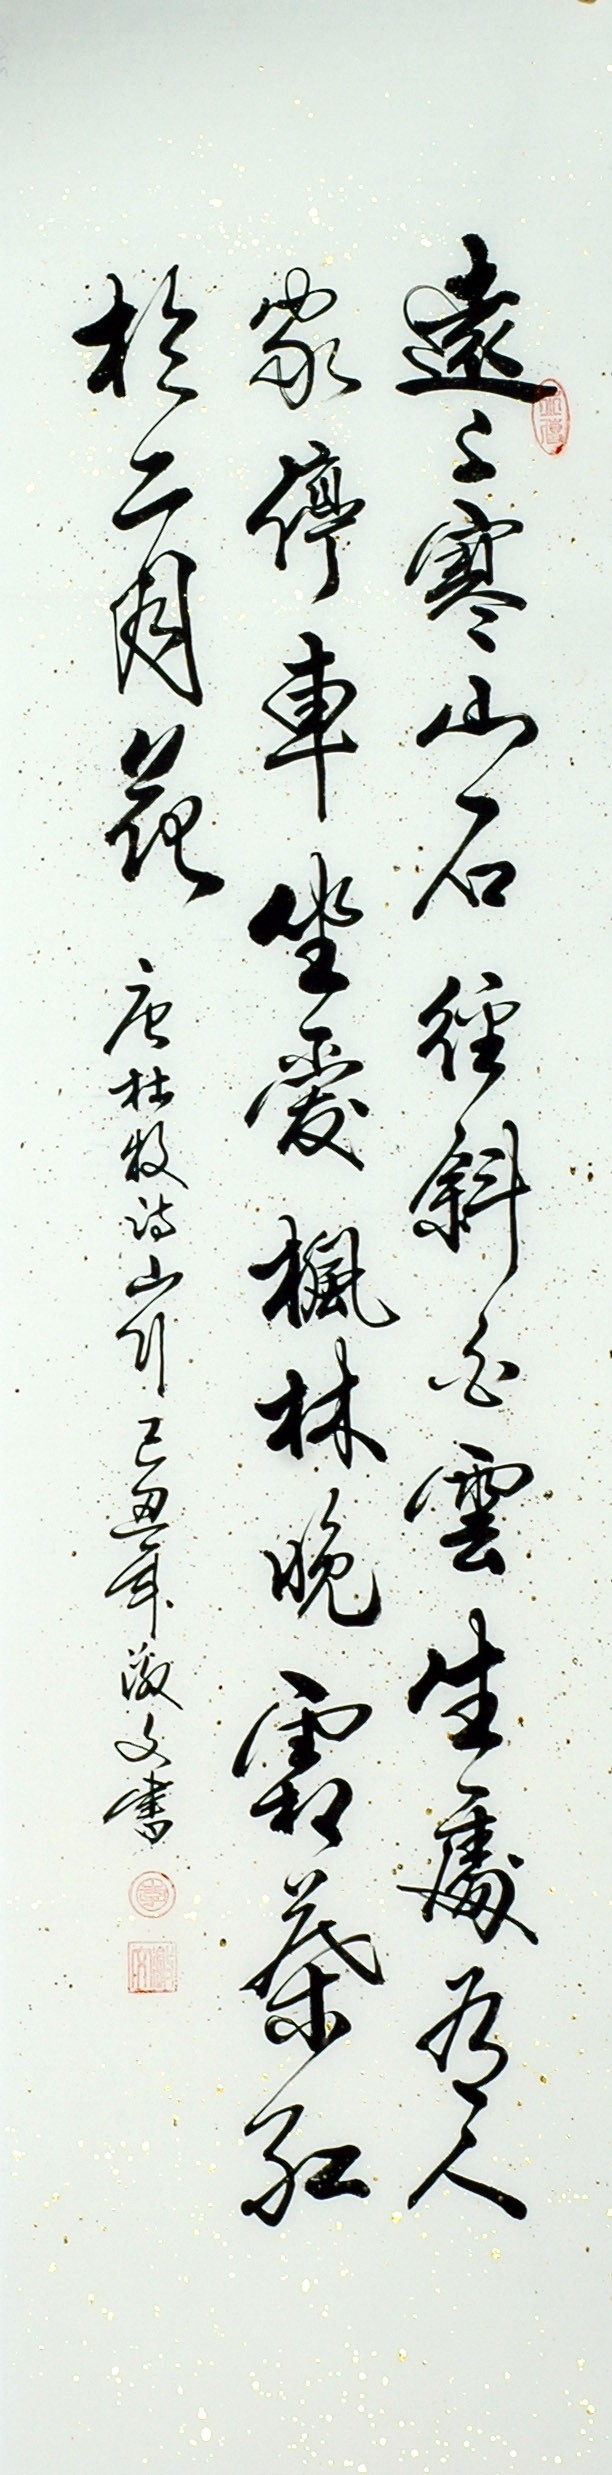 遠上寒山石徑斜白雲生處有人
家停車坐愛楓林晚霜葉紅
於二月花
唐杜牧詩山行 己丑年 文書
李